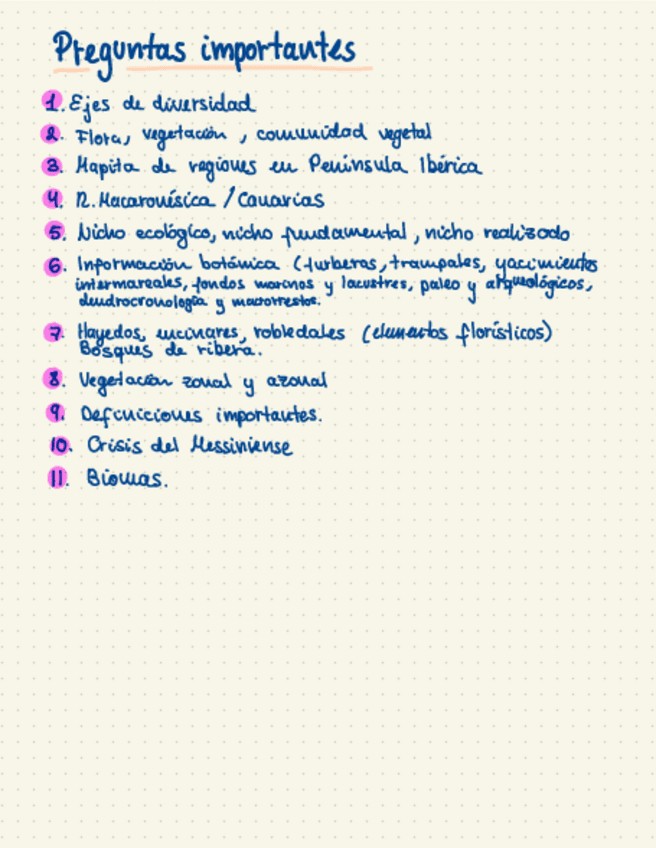 Preguntas importantes
1. Ejes de diversidad
2. Flora, vegetación, comunidad vegetal
3. Mapita de regiones en Península Ibérica
4. R. Macaronésica / Canarias
5. Nicho ecológico, nicho fundamental, nicho realizado
6. Información botánica (turberas, trampales, yacimientos
intermareales, fondos marinos y lacustres, paleo y arqueológicos,
dendrocronología y macrorrestos.
7. Hayedos, encinares, robledales (elementos florísticos)
Bosques de ribera.
8. Vegetación zonal y azonal
9. Definiciones importantes.
10. Crisis del Messiniense
11. Biomas.